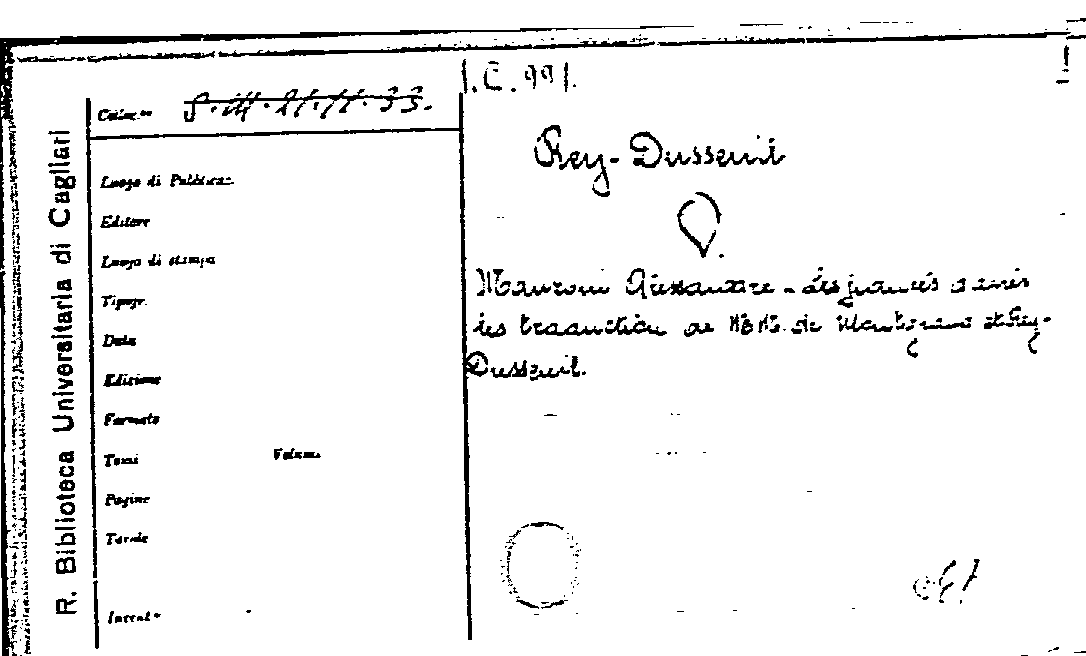 R. Biblioteca Universitaria di Cagliari
1.C.991.
Colloc.ne S.III.21.11.33.
Luogo di Pubblicaz.
Editore
Luogo di stampa
Tipogr.
Data
Edizione
Formato
Tomi Volumi
Pagine
Tavole
Invent.°
Rey-Dusseuil
V.
Manzoni Alexandre - Les fiancés
les traduction de MM. de Montgrand et Rey-
Dusseuil.